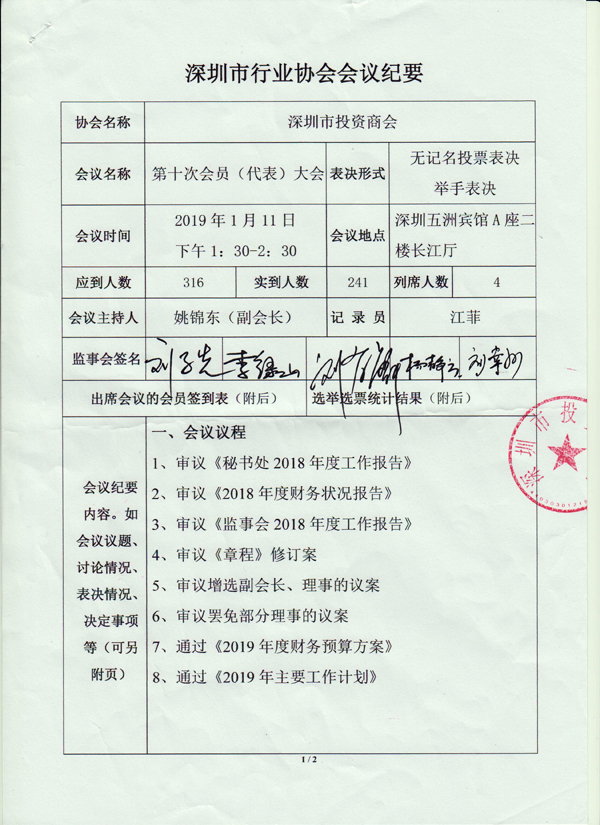 深圳市行业协会会议纪要
协会名称 深圳市投资商会
会议名称 第十次会员（代表）大会 表决形式 无记名投票表决
举手表决
会议时间 2019年1月11日
下午1：30-2：30 会议地点 深圳五洲宾馆A座二
楼长江厅
应到人数 316 实到人数 241 列席人数 4
会议主持人 姚锦东（副会长） 记录员 江菲
监事会签名
出席会议的会员签到表（附后） 选举选票统计结果（附后）
会议纪要
内容。如
会议议题、
讨论情况、
表决情况、
决定事项
等（可另
附页）
一、会议议程
1、审议《秘书处2018年度工作报告》
2、审议《2018年度财务状况报告》
3、审议《监事会2018年度工作报告》
4、审议《章程》修订案
5、审议增选副会长、理事的议案
6、审议罢免部分理事的议案
7、通过《2019年度财务预算方案》
8、通过《2019年主要工作计划》
深圳市投
1 / 2